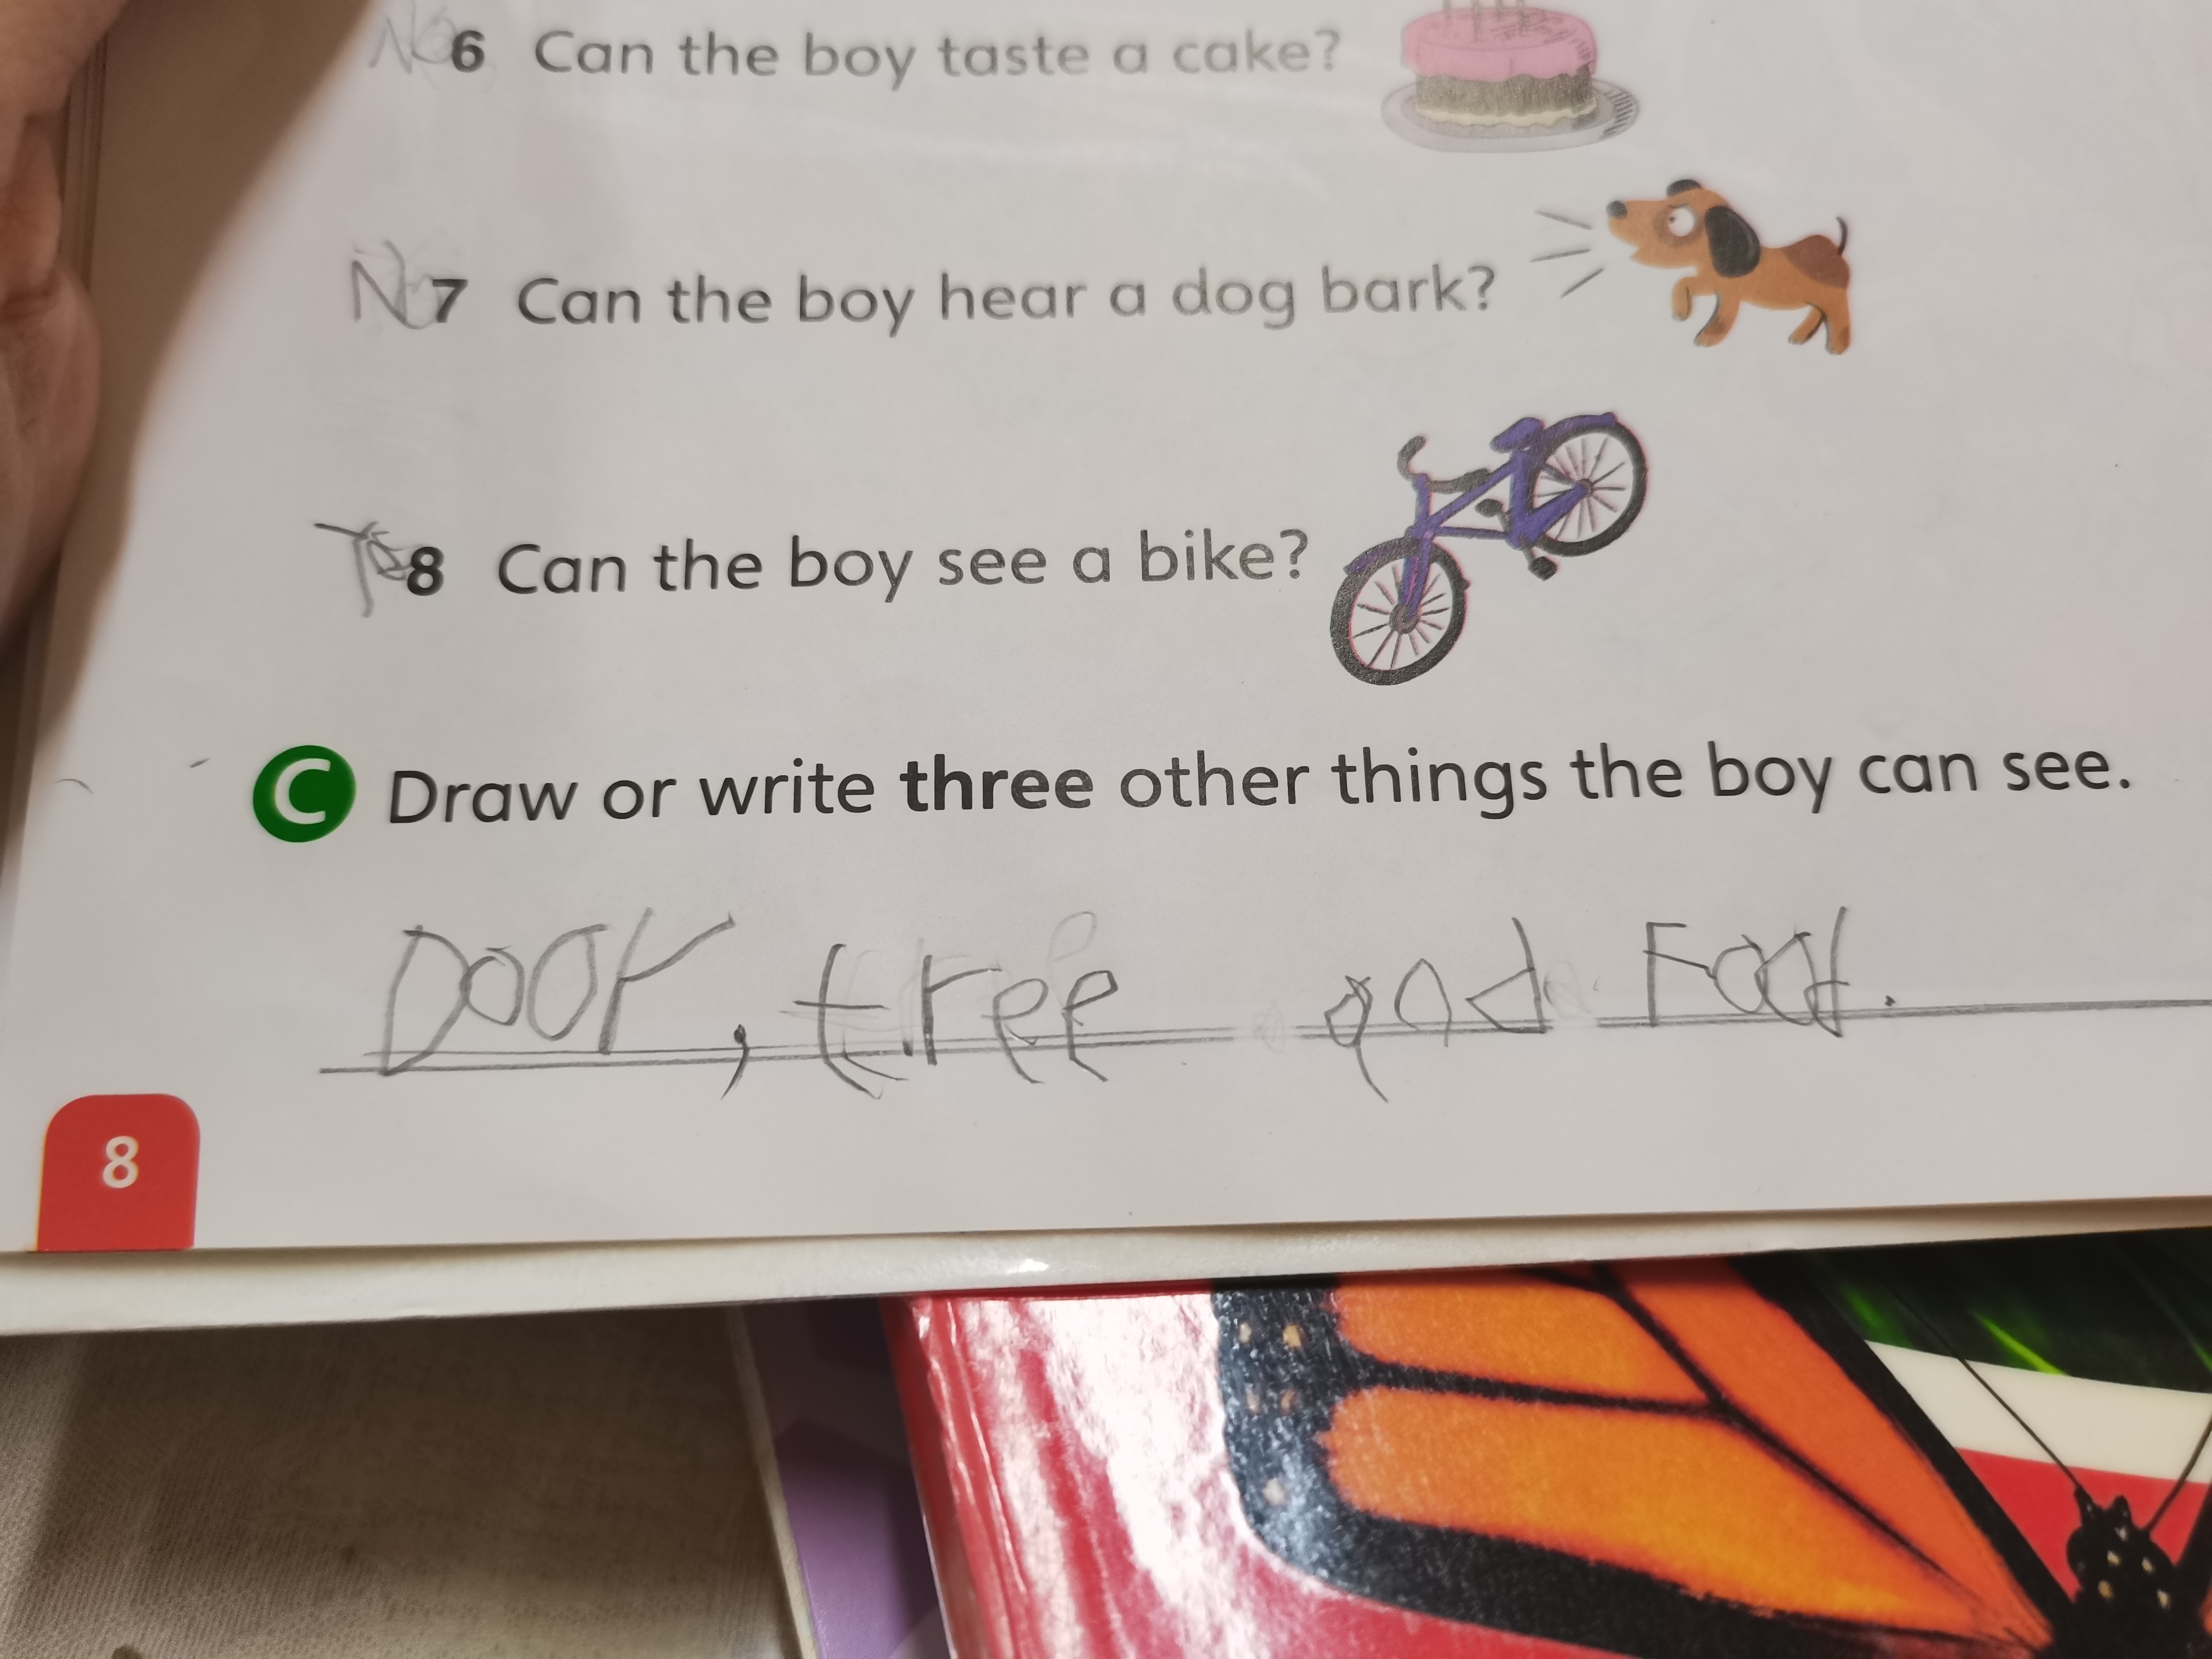 No 6 Can the boy taste a cake?
No 7 Can the boy hear a dog bark?
Yes 8 Can the boy see a bike?
C Draw or write three other things the boy can see.
Door, tree and Food.
8